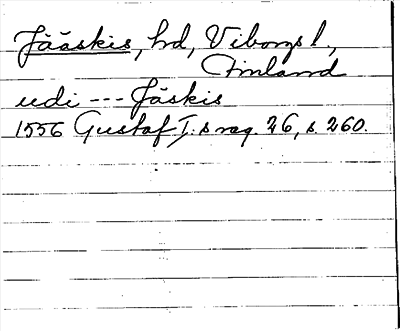 Jääskis, hd, Viborgs l.,
Finland
udi --- Jäskis
1556 Gustaf I:s reg. 26, s. 260.